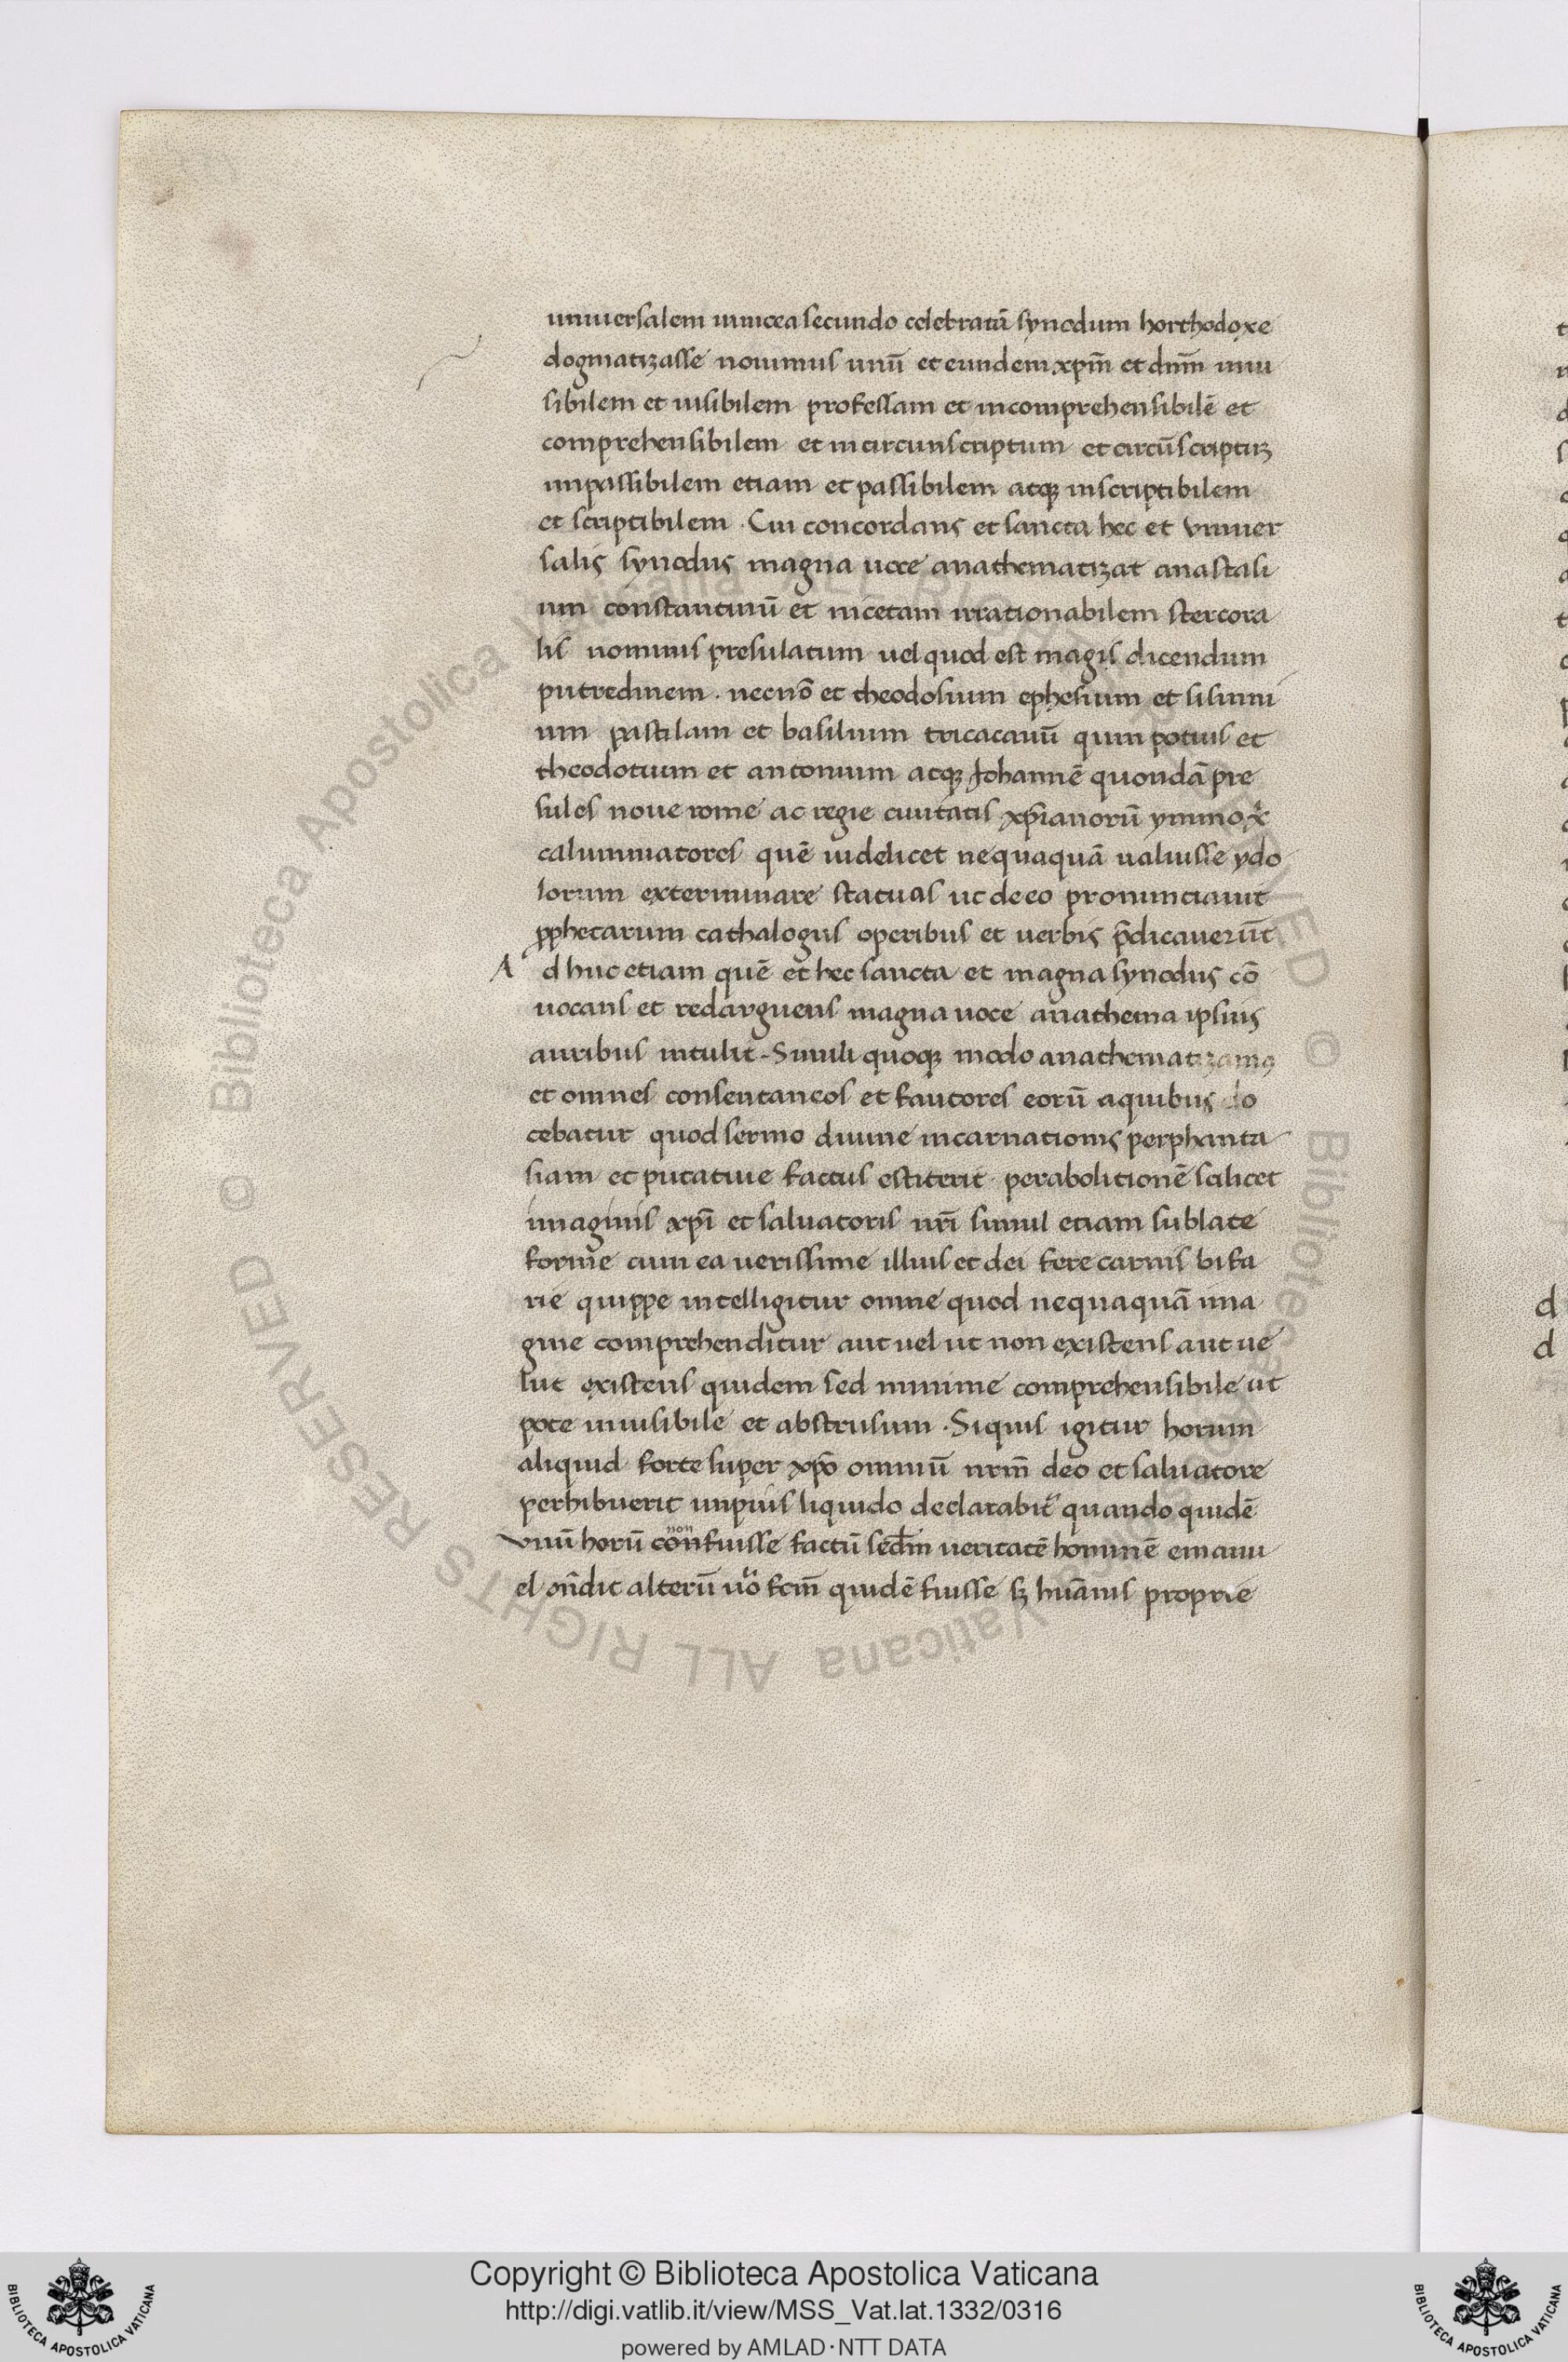 uniuersalem innicea secundo celebratā synodum horthodoxe
dogmatizasse nouimus unū et eundem xpm̄ et dnm̄ inui
sibilem et uisibilem professam et incomprehensibilē et
comprehensibilem et incircunscriptum et circūscriptuꝫ
inpassibilem etiam et passibilem atqꝫ inscriptibilem
et scriptibilem . Cui concordans et sancta hec et vniuer
salis synodus magna uoce anathematizat anastasi
um constantinū et nicetam irrationabilem stercora
lis nominis presulatum uel quod est magis dicendum
putredinem . necnō et theodosium ephesium et sisinni
um pastilam et basilium tricacauū quin potius et
theodotium et antonium atqꝫ Johannē quondā pre
sules noue rome ac regie ciuitatis xp̄ianorū ymmo x
calumniatores quē uidelicet nequaquā ualuisse ydo
lorum exterminare statuas ut de eo pronunciauit
pphetarum cathalogus operibus et uerbis p̄dicaverūt
A d huc etiam quē et hec sancta et magna synodus cō
uocans et redarguens magna uoce anathema ipsius
auribus intulit - Simili quoqꝫ modo anathematizamꝰ
et omnes consentaneos et fautores eorū aquibus do
cebatur quod sermo diuine incarnationis perphanta
siam et putatiue factus estiterit perabolitionē scilicet
imaginis xpī et saluatoris nrī simul etiam sublate
forme cum ea uerissime illius et dei fere carnis bifa
rie quippe intelligitur omne quod nequaquā ima
gine comprehenditur aut uel ut non existens aut ue
lut existens quidem sed minime comprehensibile ut
pote inuisibile et abstrusum . Siquis igitur horum
aliquid forte super xpō omniū nrm̄ deo et saluatore
perhibuerit impius liquido declarabit᷑ quando quidē
vnū horū cōn non fuisse factū sed̄m ueritatē hominē emanu
el on̄dit alterū uo fcm̄ quidē fuisse sꝫ huānis proprie
t
d
d
Copyright © Biblioteca Apostolica Vaticana
http://digi.vatlib.it/view/MSS_Vat.lat.1332/0316
powered by AMLAD · NTT DATA
BIBLIOTECA APOSTOLICA VATICANA
BIBLIOTECA APOSTOLICA VATICANA
© Biblioteca Apostolica Vaticana ALL RIGHTS RESERVED
© Biblioteca Apostolica Vaticana ALL RIGHTS RESERVED